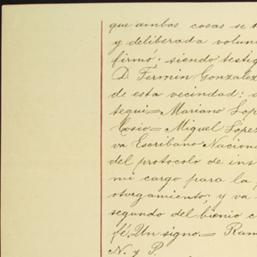 que ambas cosas se
y deliberada volun
firmó; siendo testig
D. Fermin Gonzalez
de esta vecindad:
tegui = Mariano Lop
Cosio = Miguel Lopez
va Escribano Naciona
del protocolo de ins
mi cargo para la
otorgamiento, y va
segundo del bienio c
fé. Un signo. = Ram
N. y P.